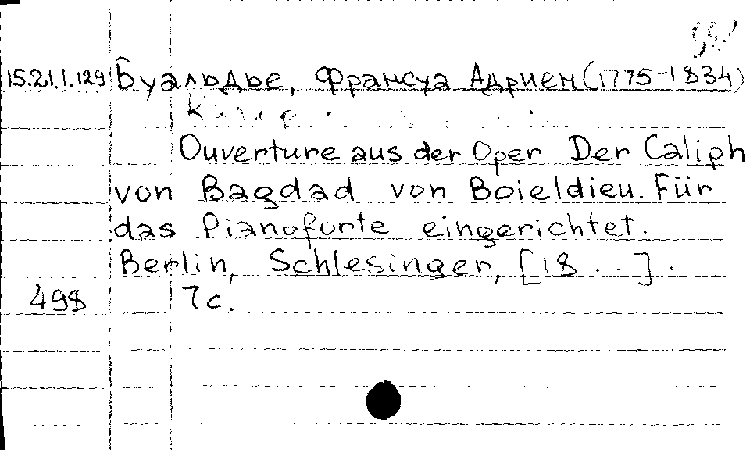 15.21.1.129 Буальдье, Франсуа Адриен (1775-1834)
Ouverture aus der Oper Der Caliph
von Bagdad von Boieldieu. Für
das Pianoforte eingerichtet.
Berlin, Schlesinger, [18 . . ].
498 7 с.